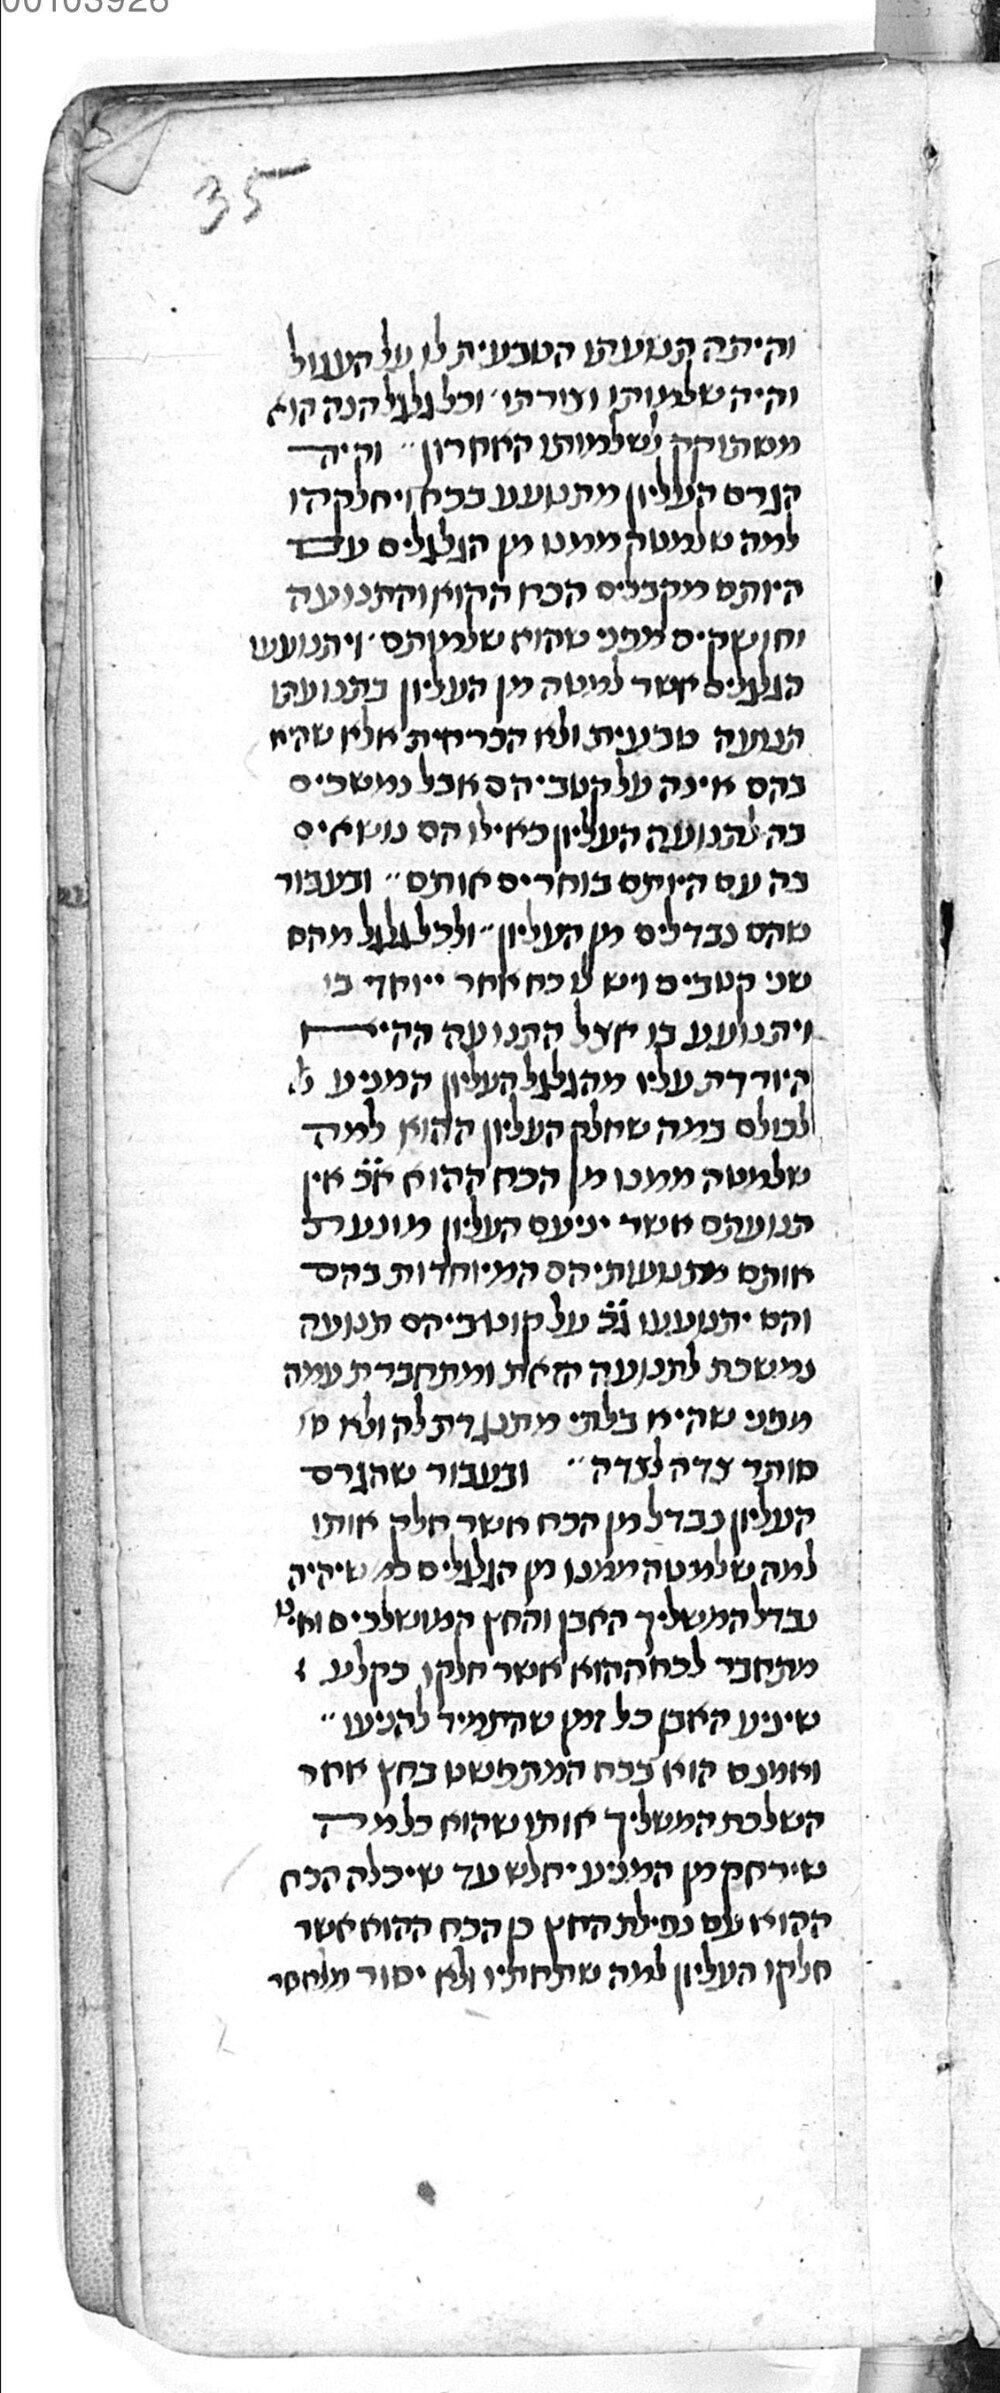 00103926
35
והיתה תנועתו הטבעית לו על העגול
והיה שלמותו וצורתו׳ וכל גלגל הנה הוא
משתוקק לשלמותו האחרון״ והיה
הגרם העליון מתנועע בכח ויחלקהו
למה שלמטה ממנו מן הגלגלים עם
היותם מקבלים הכח ההוא והתנועה
וחושקים מפני שהוא שלמותם׳ ויתנועעו
הגלגלים אשר למטה מן העליון בתנועתו
תנועה טבעית ולא הכרחית אלא שהיא
בהם אינה על קטביהם אבל נמשכים
בה לתנועה העליון כאילו הם נושאים
בה עם היותם בוחרים אותם״ ובעבור
שהם נבדלים מן העליון״ ולכל גלגל מהם
שני קטבים ויש לו כח אחר ייוחד בו
ויתנועע בו אצל התנועה ההיא
היורדת עליו מהגלגל העליון המניע
לכולם במה שחלק העליון ההוא למה
שלמטה ממנו מן הכח ההוא א״כ אין
תנועתם אשר יניעם העליון מונעת
אותם מתנועותיהם המיוחדות בהם
והם יתנועעו ג״כ על קוטביהם תנועה
נמשכת לתנועה הזאת ומתחברת עמה
מפני שהיא בלתי מתנגדת לה ולא
סותר צדה לצדה״ ובעבור שהגרם
העליון נבדל מן הכח אשר חלק אותו
למה שלמטה ממנו מן הגלגלים כמו שיהיה
נבדל המשליך האבן והחץ המושלכים ואינו
מתחבר לכח ההוא אשר חלקו כקלע
שיניע האבן כל זמן שהתמיד להניעו״
ואמנם הוא בכח המתפשט בחץ אחר
השלכת המשליך אותו שהוא כל מה
שירחק מן המניע יחלש עד שיכלה הכח
ההוא עם נפילת החץ כן הכח ההוא אשר
חלקו העליון למה שתחתיו ולא יסור מלחסר